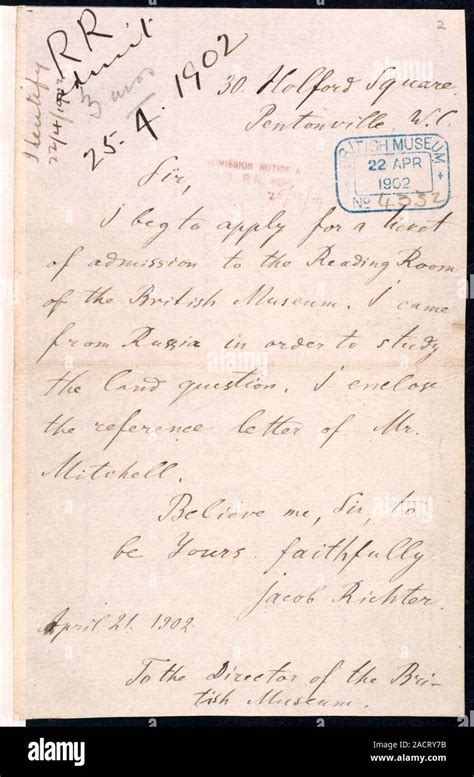 2
RR
admit
3 mos
25.4.1902
Identify
22/4/1902
30. Holford Square.
Pentonville. W.C.
BRITISH MUSEUM
22 APR
1902
No 4332
Sir,
I beg to apply for a ticket
of admission to the Reading Room
of the British Museum. I came
from Russia in order to study
the land question. I enclose
the reference letter of Mr.
Mitchell.
Believe me, Sir, to
be Yours faithfully
Jacob Richter.
April 21. 1902.
To the Director of the Bri-
tish Museum.
alamy
Image ID: 2ACRY7B
www.alamy.com